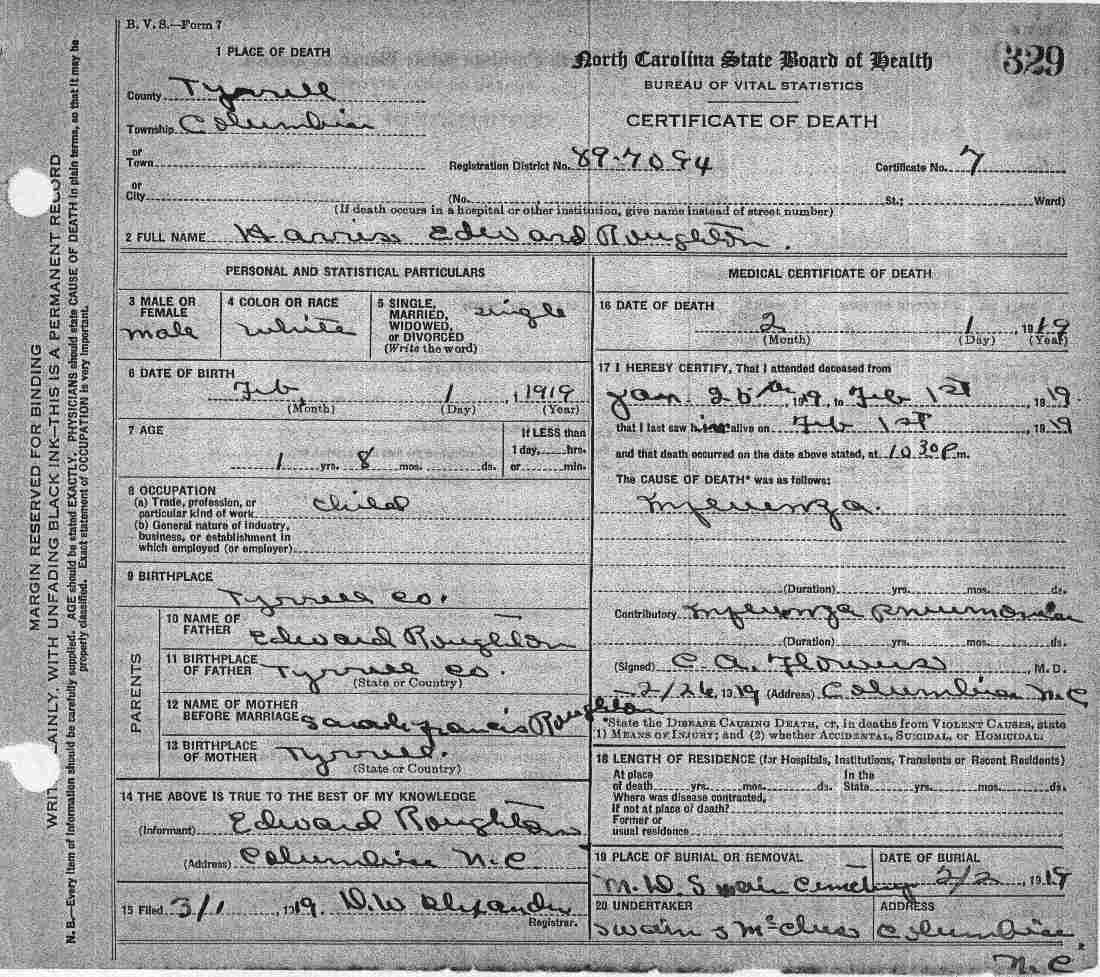 B. V. S.—Form 7
1 PLACE OF DEATH
North Carolina State Board of Health
329
BUREAU OF VITAL STATISTICS
CERTIFICATE OF DEATH
County Tyrrell
Township Columbia
or
Town
Registration District No. 89-7094
Certificate No. 7
or
City (No. St.; Ward)
(If death occurs in a hospital or other institution, give name instead of street number)
2 FULL NAME Harris Edward Roughton.
PERSONAL AND STATISTICAL PARTICULARS
3 MALE OR FEMALE male
4 COLOR OR RACE white
5 SINGLE, MARRIED, WIDOWED, or DIVORCED (Write the word) single
6 DATE OF BIRTH
Feb 1, 1919
(Month) (Day) (Year)
7 AGE
1 yrs. 8 mos. ds.
If LESS than
1 day, hrs.
or min.
8 OCCUPATION
(a) Trade, profession, or
particular kind of work child
(b) General nature of industry,
business, or establishment in
which employed (or employer)
9 BIRTHPLACE
Tyrrell Co.
PARENTS
10 NAME OF FATHER Edward Roughton
11 BIRTHPLACE OF FATHER Tyrrell Co.
(State or Country)
12 NAME OF MOTHER BEFORE MARRIAGE Sarah Francis Roughton
13 BIRTHPLACE OF MOTHER Tyrrell.
(State or Country)
14 THE ABOVE IS TRUE TO THE BEST OF MY KNOWLEDGE
(Informant) Edward Roughton
(Address) Columbia N.C
15 Filed 3/1, 1919. W Alexander
Registrar.
MEDICAL CERTIFICATE OF DEATH
16 DATE OF DEATH
2 1, 1919
(Month) (Day) (Year)
17 I HEREBY CERTIFY, That I attended deceased from
Jan. 1919, to Feb 1st 1919
that I last saw him alive on Feb 1st, 1919
and that death occurred on the date above stated, at 10 30 P m.
The CAUSE OF DEATH* was as follows:
Influenza.
(Duration) yrs. mos. ds.
Contributory Influenza Pneumonia
(Duration) yrs. mos. ds.
(Signed) C. A. Flowers, M. D.
2/26, 1919 (Address) Columbia N.C
*State the DISEASE CAUSING DEATH, or, in deaths from VIOLENT CAUSES, state
1) MEANS OF INJURY; and (2) whether ACCIDENTAL, SUICIDAL, or HOMICIDAL.
18 LENGTH OF RESIDENCE (for Hospitals, Institutions, Transients or Recent Residents)
At place of death yrs. mos. ds. In the State yrs. mos. ds.
Where was disease contracted,
if not at place of death?
Former or
usual residence
19 PLACE OF BURIAL OR REMOVAL
M. D. Swain Cemetery
DATE OF BURIAL
2/2, 1919
20 UNDERTAKER
Swain &
ADDRESS
Columbia
N.C
MARGIN RESERVED FOR BINDING
PLAINLY, WITH UNFADING BLACK INK—THIS IS A PERMANENT RECORD
N. B.—Every item of information should be carefully supplied. AGE should be stated EXACTLY. PHYSICIANS should state CAUSE OF DEATH in plain terms, so that it may be
properly classified. Exact statement of OCCUPATION is very important.